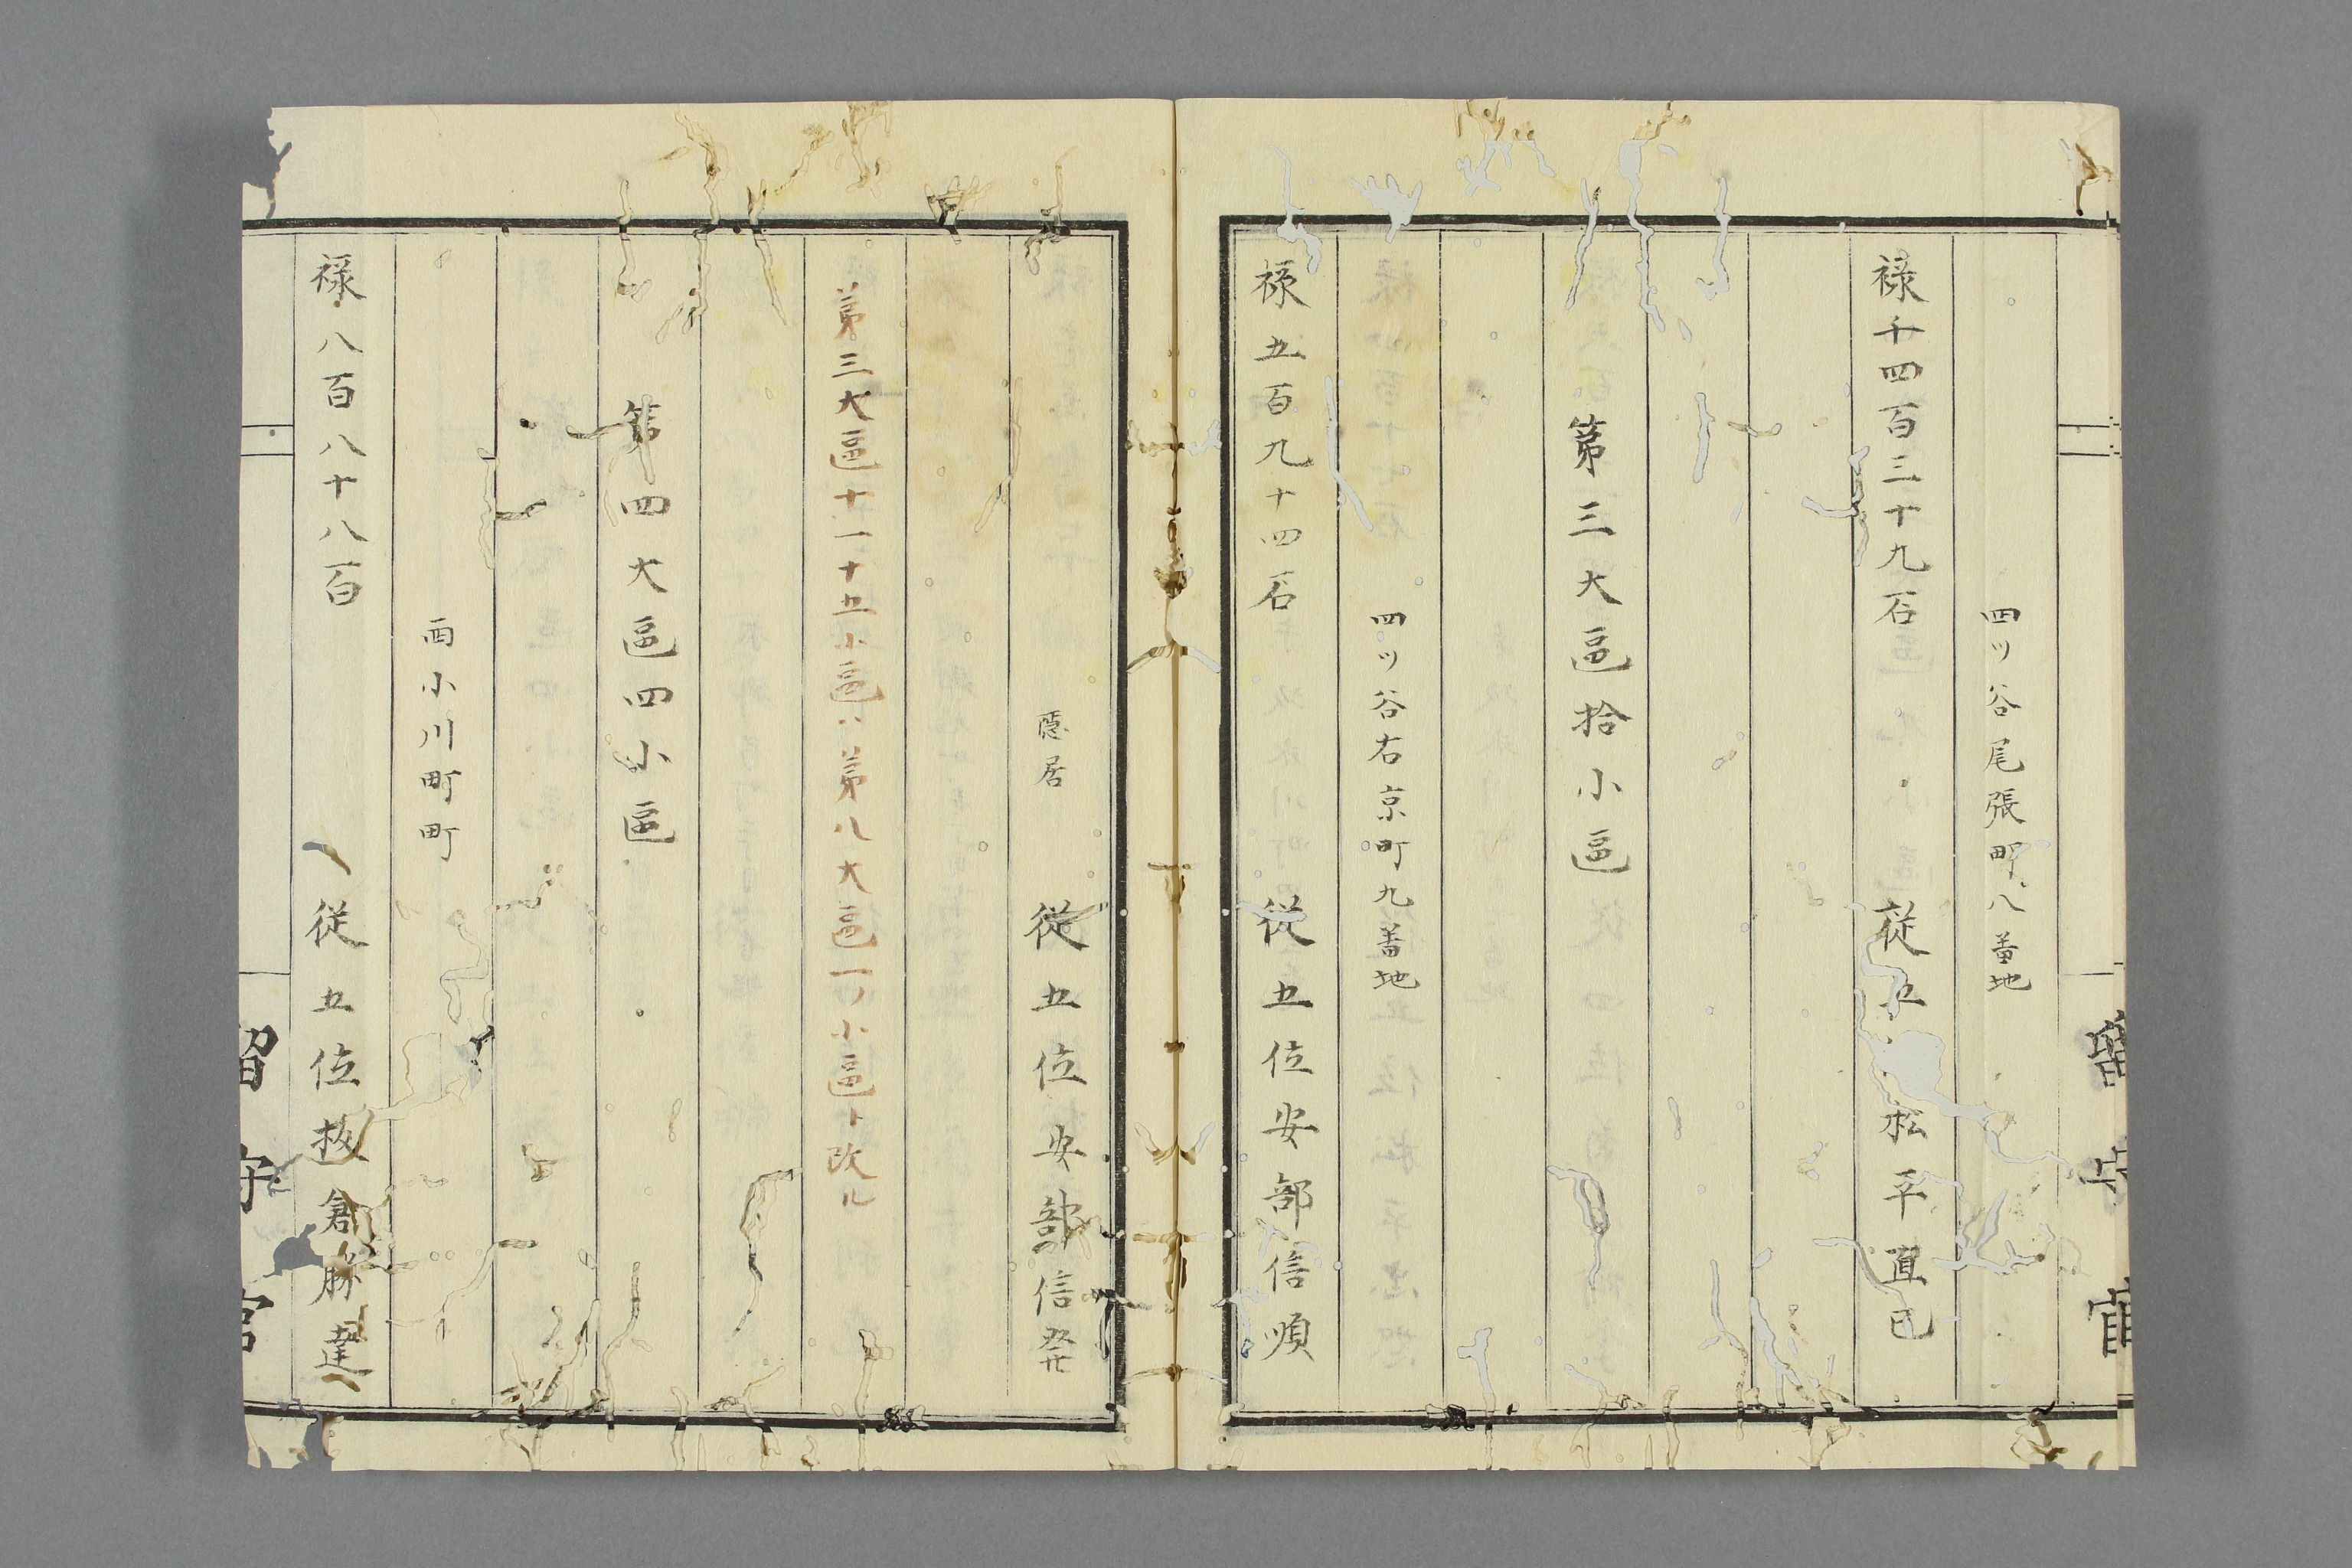 四ツ谷尾張町八番地
禄千四百三十九石
従五位松平直己
第三大區拾小區
四ツ谷右京町九番地
禄五百九十四石
従五位安部信順
隠居
従五位安部信発
第三大區十一十五小區ハ第八大區一ノ小區ト改ル
第四大區四小區
西小川町町
禄八百八十八百
従五位板倉勝達
留守官